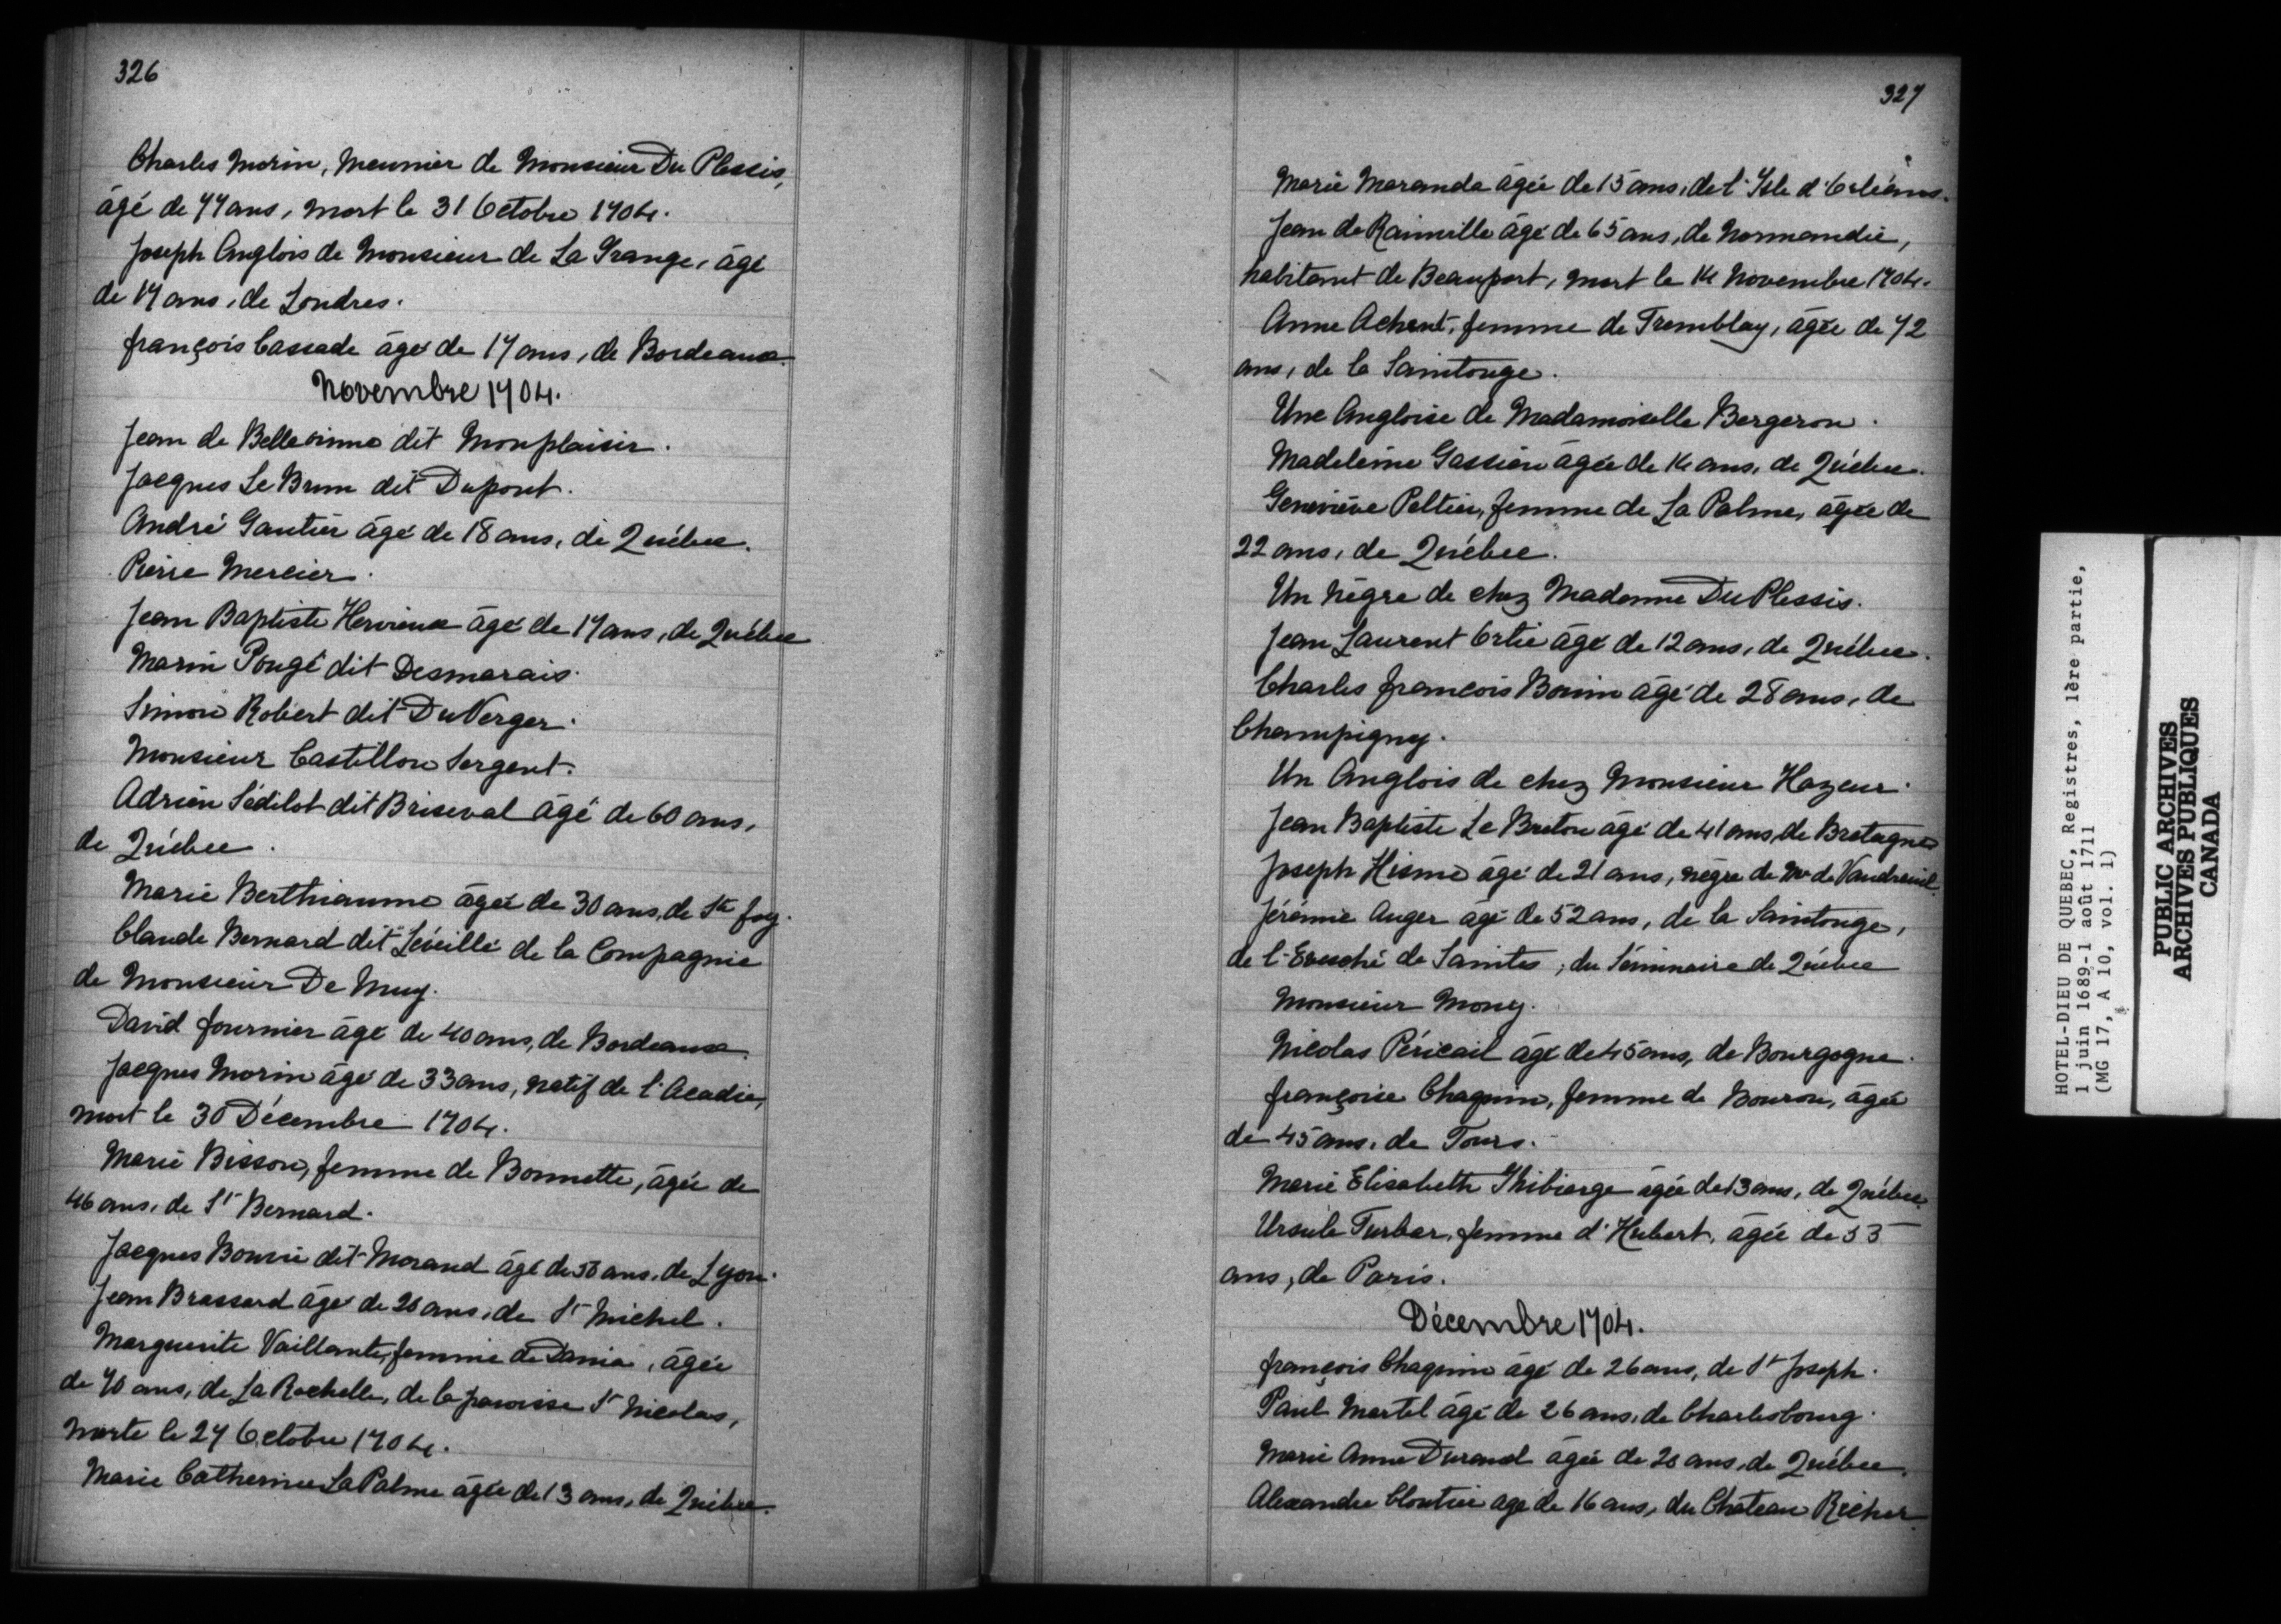 326
Charles Morin, Meunier de Monsieur Du Plessis,
âgé de 77 ans, mort le 31 Octobre 1704.
Joseph Anglois de Monsieur de La Grange, âgé
de 17 ans, de Londres.
françois Cascade âgé de 17 ans, de Bordeaux.
Novembre 1704.
Jean de Bellesinne dit Monplaisir.
Jacques Le Brun dit Dupont.
André Gautier âgé de 18 ans, de Québec.
Pierre Mercier.
Jean Baptiste Hervieux âgé de 17 ans, de Québec
Marin Pougé dit Desmarais.
Simon Robert dit DuVerger.
Monsieur Castillon Sergent.
Adrien Sédilot dit Briseval âgé de 60 ans,
de Québec.
Marie Berthiaume âgée de 30 ans, de Ste foy.
Claude Bernard dit Léveillé de la Compagnie
de Monsieur De Muy.
David fournier âgé de 40 ans, de Bordeaux.
Jacques Morin âgé de 33 ans, natif de l'Acadie,
mort le 30 Décembre 1704.
Marie Bisson, femme de Bonnette, âgée de
46 ans, de St Bernard.
Jacques Bouvié dit Morand âgé de 56 ans, de Lyon.
Jean Brassard âgé de 20 ans, de St Michel.
Marguerite Vaillante, femme de Dania, âgée
de 70 ans, de La Rochelle, de la paroisse St Nicolas,
morte le 27 Octobre 1704.
Marie Catherine La Palme âgée de 13 ans, de Québec.
327
Marie Maranda âgée de 15 ans, de l'Isle d'Orléans.
Jean de Rainville âgé de 65 ans, de Normandie,
habitant de Beauport, mort le 14 Novembre 1704.
Anne Achent, femme de Tremblay, âgée de 72
ans, de la Saintonge.
Une Angloise de Madamoiselle Bergeron.
Madeleine Gassien âgée de 14 ans, de Québec.
Geneviève Peltier, femme de La Palme, âgée de
22 ans, de Québec.
Un Nègre de chez Madame Du Plessis.
Jean Laurent Ortie âgé de 12 ans, de Québec.
Charles françois Bonin âgé de 28 ans, de
Champigny.
Un Anglois de chez Monsieur Hazeur.
Jean Baptiste Le Breton âgé de 41 ans, de Bretagne
Joseph Hisme âgé de 21 ans, nègre de Mr de Vaudreuil.
Jérémie Auger âgé de 52 ans, de la Saintonge,
de l'Evesché de Saintes, du Séminaire de Québec
Monsieur Mony.
Nicolas Péricail âgé de 45 ans, de Bourgogne.
françoise Chapuin, femme de Bouron, âgée
de 45 ans, de Tours.
Marie Elisabeth Thibierge âgée de 13 ans, de Québec.
Ursule Turbar, femme d'Hubert, âgée de 53
ans, de Paris.
Décembre 1704.
françois Chapuin âgé de 26 ans, de St Joseph.
Paul Martel âgé de 26 ans, de Charlesbourg.
Marie Anne Durand âgée de 20 ans, de Québec.
Alexandre Cloutier agé de 16 ans, du Château Richer
HOTEL-DIEU DE QUEBEC, Registres, 1ère partie,
1 juin 1689-1 août 1711
(MG 17, A 10, vol. 1)
PUBLIC ARCHIVES
ARCHIVES PUBLIQUES
CANADA